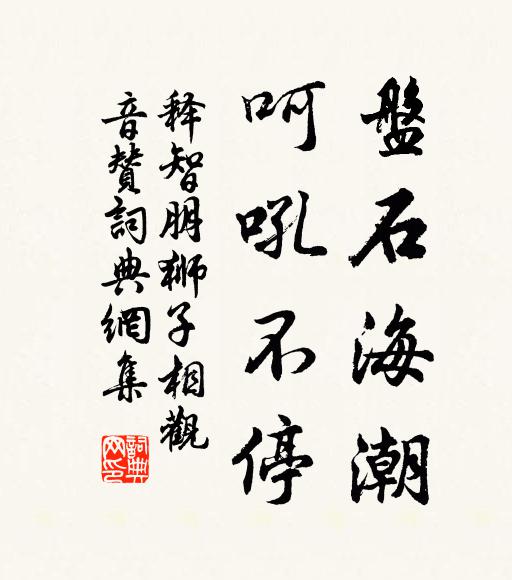 盤石海潮
呵吼不停
释智朋狮子相觀
音贊詞典網集
詞典
网印